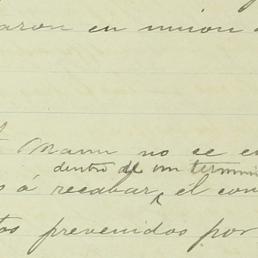 aron en union
Mann no se e
dentro de un termin
s á recabar, el con
tos prevenidos por